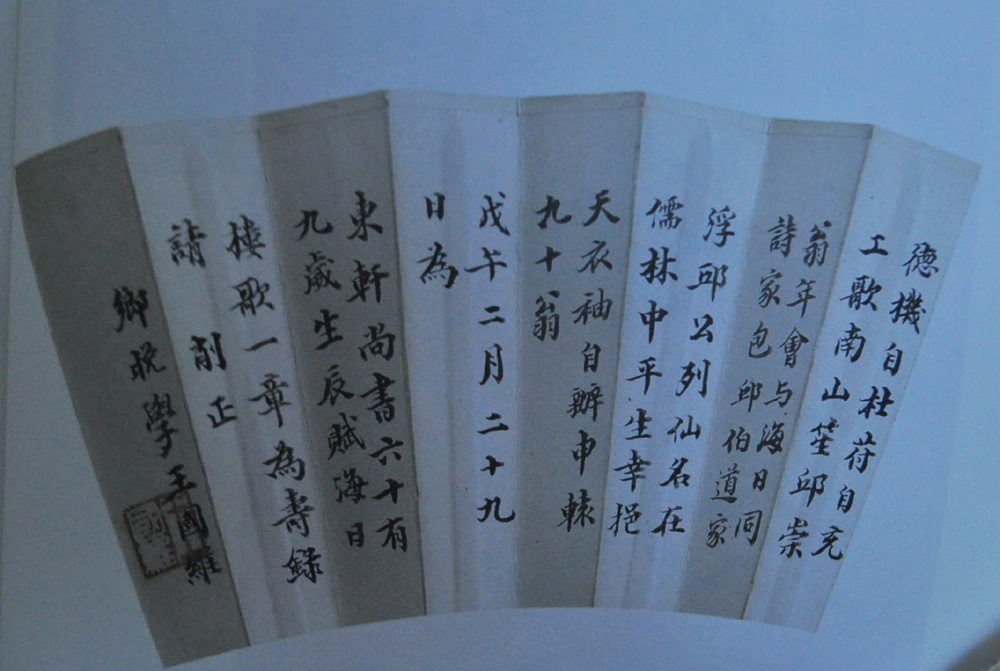 德機自杜苻自充
工歌南山笙邱崇
翁年會与海日同
詩家包邱伯道家
浮邱公列仙名在
儒林中平生幸挹
天衣袖自辦申轅
九十翁
戊午二月二十九
日為
東軒尚書六十有
九歲生辰賦海日
樓歌一章為壽錄
請 削正
鄉晚學王國維